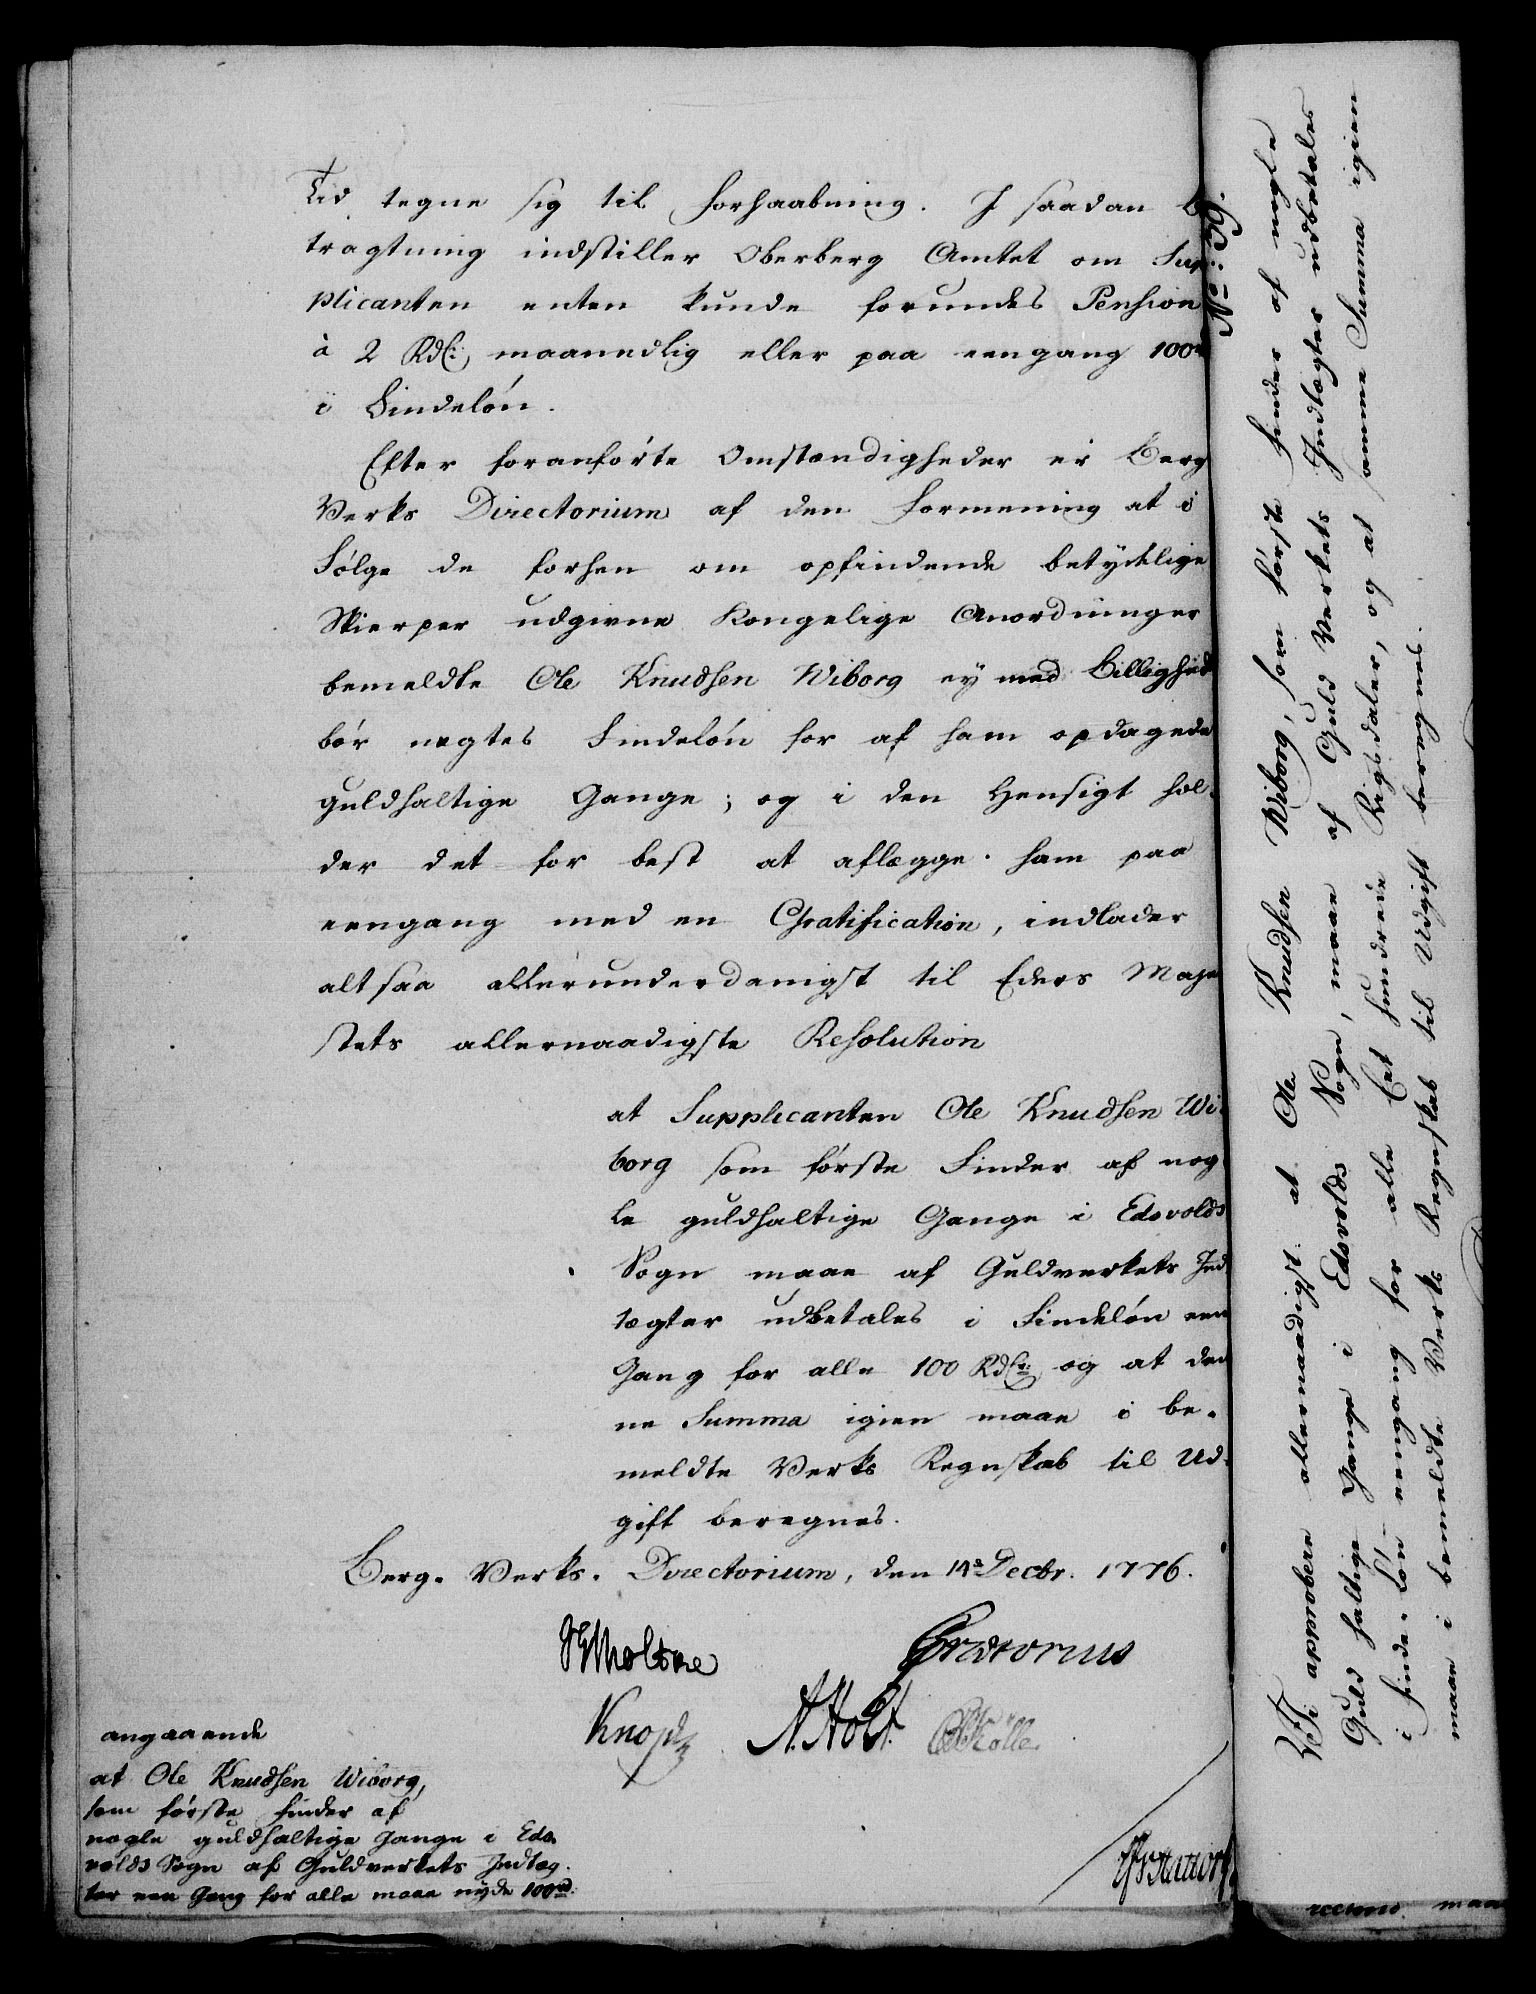 Tid tegne sig til forhaabning. I saadan be
tragtning indstiller Oberberg Amtet om Sup
plicanten enten kunde forundes Pension
à 2 Rdlr: maanedlig eller paa eengang 100rd
i Findelön.
Efter foranförte Omstændigheder er Berg
Verks Directorium af den Formening at i
Fölge de forhen om opfindende betydelige
Skierper udgivne Kongelige Anordninger
bemeldte Ole Knudsen Wiborg ey med Billighed
bör negtes Findelön for af ham opdagede
guldhaltige Gange; og i den Hensigt hol-
der det for best at aflægge ham paa
eengang med en Gratification, indlader
altsaa allerunderdanigst til Eders Maje
stets allernaadigste Resolution
at Supplicanten Ole Knudsen Wi-
borg som förste Finder af nog-
le guldhaltige Gange i Edsvolds
Sogn maae af Guldverkets Ind
tægter udbetales i Findelön een
Gang for alle 100 Rdlr: og at den
ne Summa igien maae i be-
meldte Verks Regnskab til Ud-
gift beregnes.
Berg- Verks- Directorium, den 14de Decbr. 1776.
Moltke Prætorius
Knoph A. Holt Kölle
angaaende
at Ole Knudsen Wiborg,
som förste finder af
nogle guldhaltige Gange i Eds-
volds Sogn af Guldverkets Indtæg-
ter een Gang for alle maae nyde 100rd:
No: 39.
Vi approbere allernaadigst at Ole Knudsen Wiborg, som förste finder af nogle
Guld haltige Gange i Edsvolds Sogn, maae af Guld Verkets Indtægter udbetales
i finde-Lön eengang for alle Eet hundrede Rigsdaler, og at samme Summa igien
maae i bemeldte Verks Regnskab til Udgift beregnes.
maa